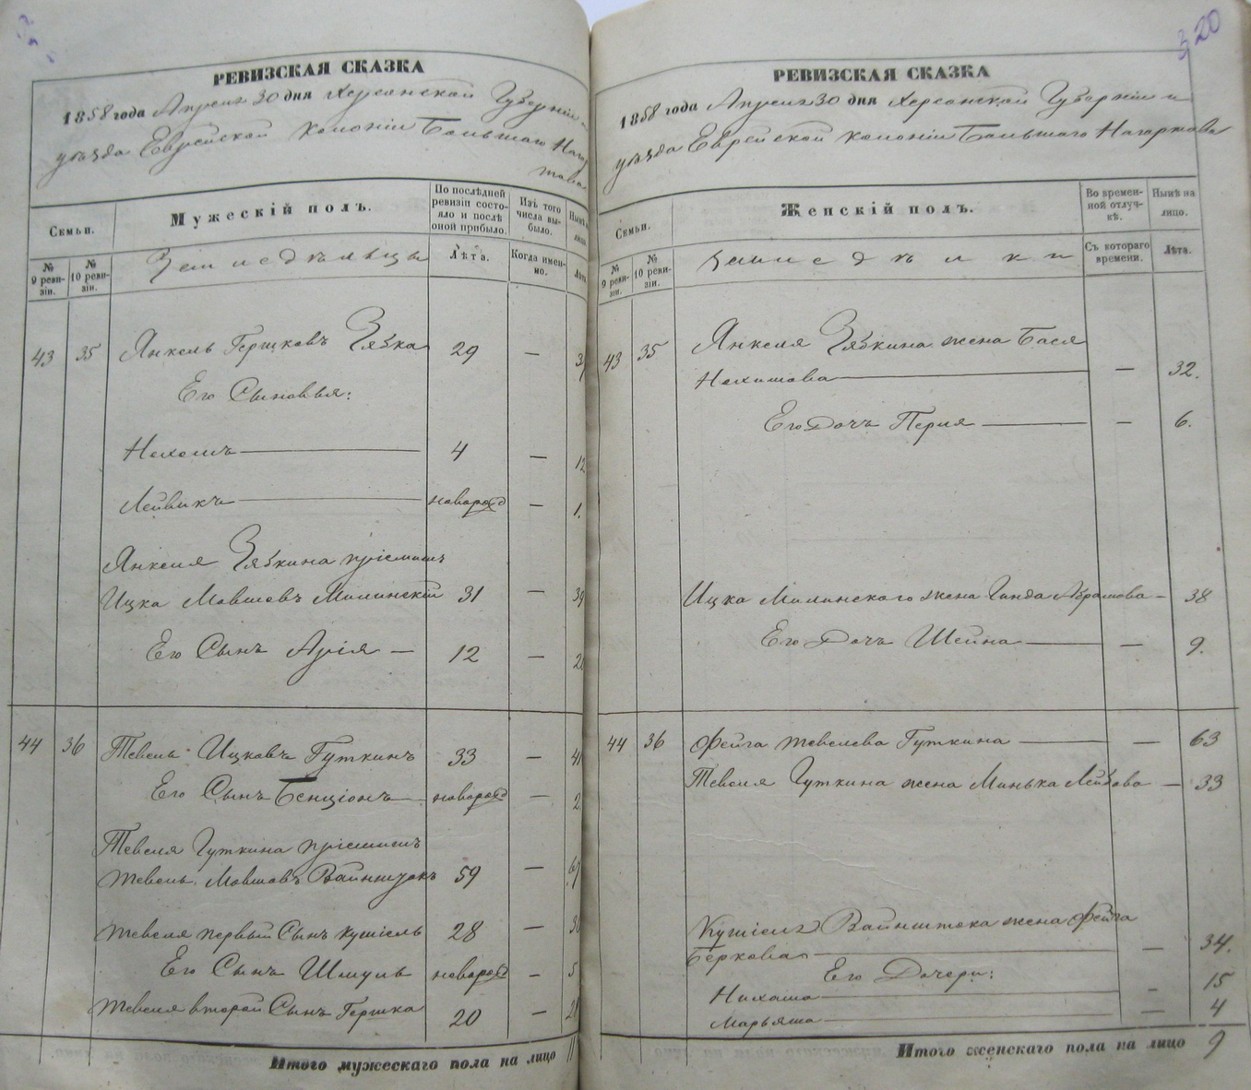 РЕВИЗСКАЯ СКАЗКА
1858 года Апреля 30 дня Херсонской Губерніи и
уѣзда Еврейской колоніи Большаго Нагар
това
Семьи.
Мужескій полъ.
По послѣдней ревизіи состояло и послѣ оной прибыло.
Изъ того числа выбыло.
Нынѣ на лицо.
№ 9 ревизіи.
№ 10 ревизіи.
Земледѣльцы
Лѣта.
Когда именно.
Лѣта
43 35 Янкель Гершковъ Зябка 29 —
Его Сыновья:
Нохимъ — 4 — 12
Лейвикъ — новорожд — 1.
Янкеля Зябкина пріемышъ
Ицка Мовшевъ Милинскій 31 — 39
Его Сынъ Арія — 12 — 20
44 36 Тевель Ицковъ Гуткинъ 33 — 41
Его Сынъ Бенціонъ — новорожд — 2
Тевеля Гуткина пріемышъ
Тевель Мовшовъ Вайнштокъ 59 — 67
Тевеля первый Сынъ Кушіель 28 — 36
Его Сынъ Шмуль новорожд — 5
Тевеля второй Сынъ Гершка 20 — 28
Итого мужескаго пола на лицо 11
320
РЕВИЗСКАЯ СКАЗКА
1858 года Апреля 30 дня Херсонской Губерніи и
уѣзда Еврейской колоніи Большаго Нагартова
Семьи.
Женскій полъ.
Во временной отлучкѣ.
Нынѣ на лицо.
№ 9 ревизіи.
№ 10 ревизіи.
Земледѣлки
Съ котораго времени.
Лѣта.
43 35 Янкеля Зябкина жена Бася
Нохимова — — 32.
Его Дочь Перля — — 6.
Ицка Милинскаго жена Гинда Абрамова — 38
Его Дочь Шейна — — 9.
44 36 Фейга Тевелева Гуткина — — 63
Тевеля Гуткина жена Минька Лейбова — 33
Кушіеля Вайнштока жена Фейга
Беркова — — 34.
Его Дочери:
Нихама — — 15
Марьяша — — 4
Итого женскаго пола на лицо 9